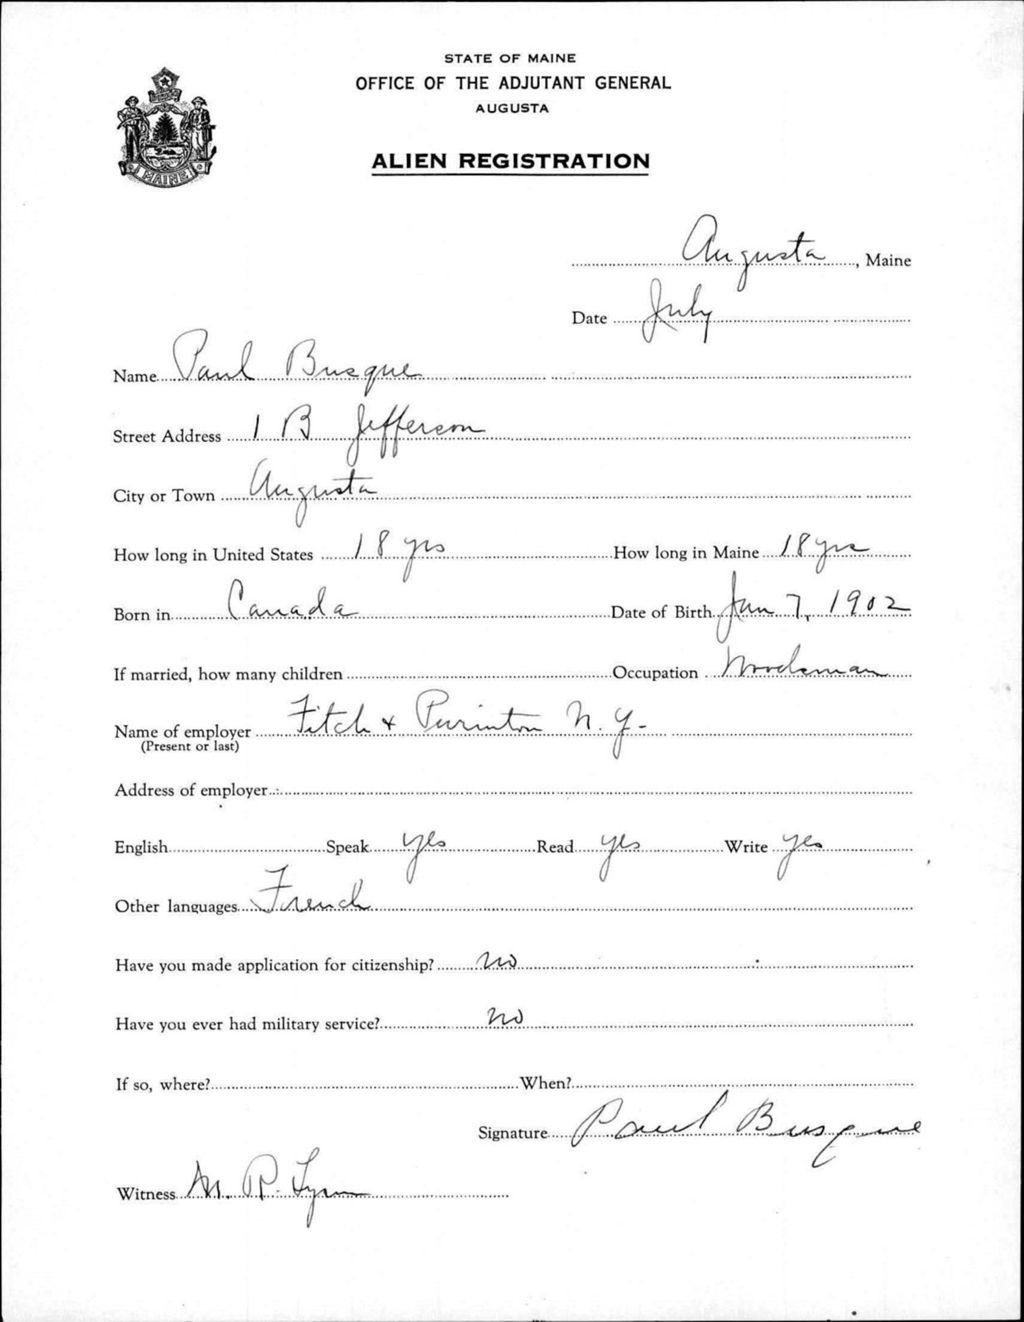 STATE OF MAINE
OFFICE OF THE ADJUTANT GENERAL
AUGUSTA
ALIEN REGISTRATION
MAINE
Augusta, Maine
Date July
Name Paul Busque
Street Address 1 B Jefferson
City or Town Augusta
How long in United States 18 yrs How long in Maine 18 yrs
Born in Canada Date of Birth Jan 7, 1902
If married, how many children Occupation Woodsman
Name of employer Fitch + Purinton N. Y.
(Present or last)
Address of employer
English Speak yes Read yes Write yes
Other languages French
Have you made application for citizenship? No
Have you ever had military service? No
If so, where? When?
Signature Paul Busque
Witness M. P. Lynn